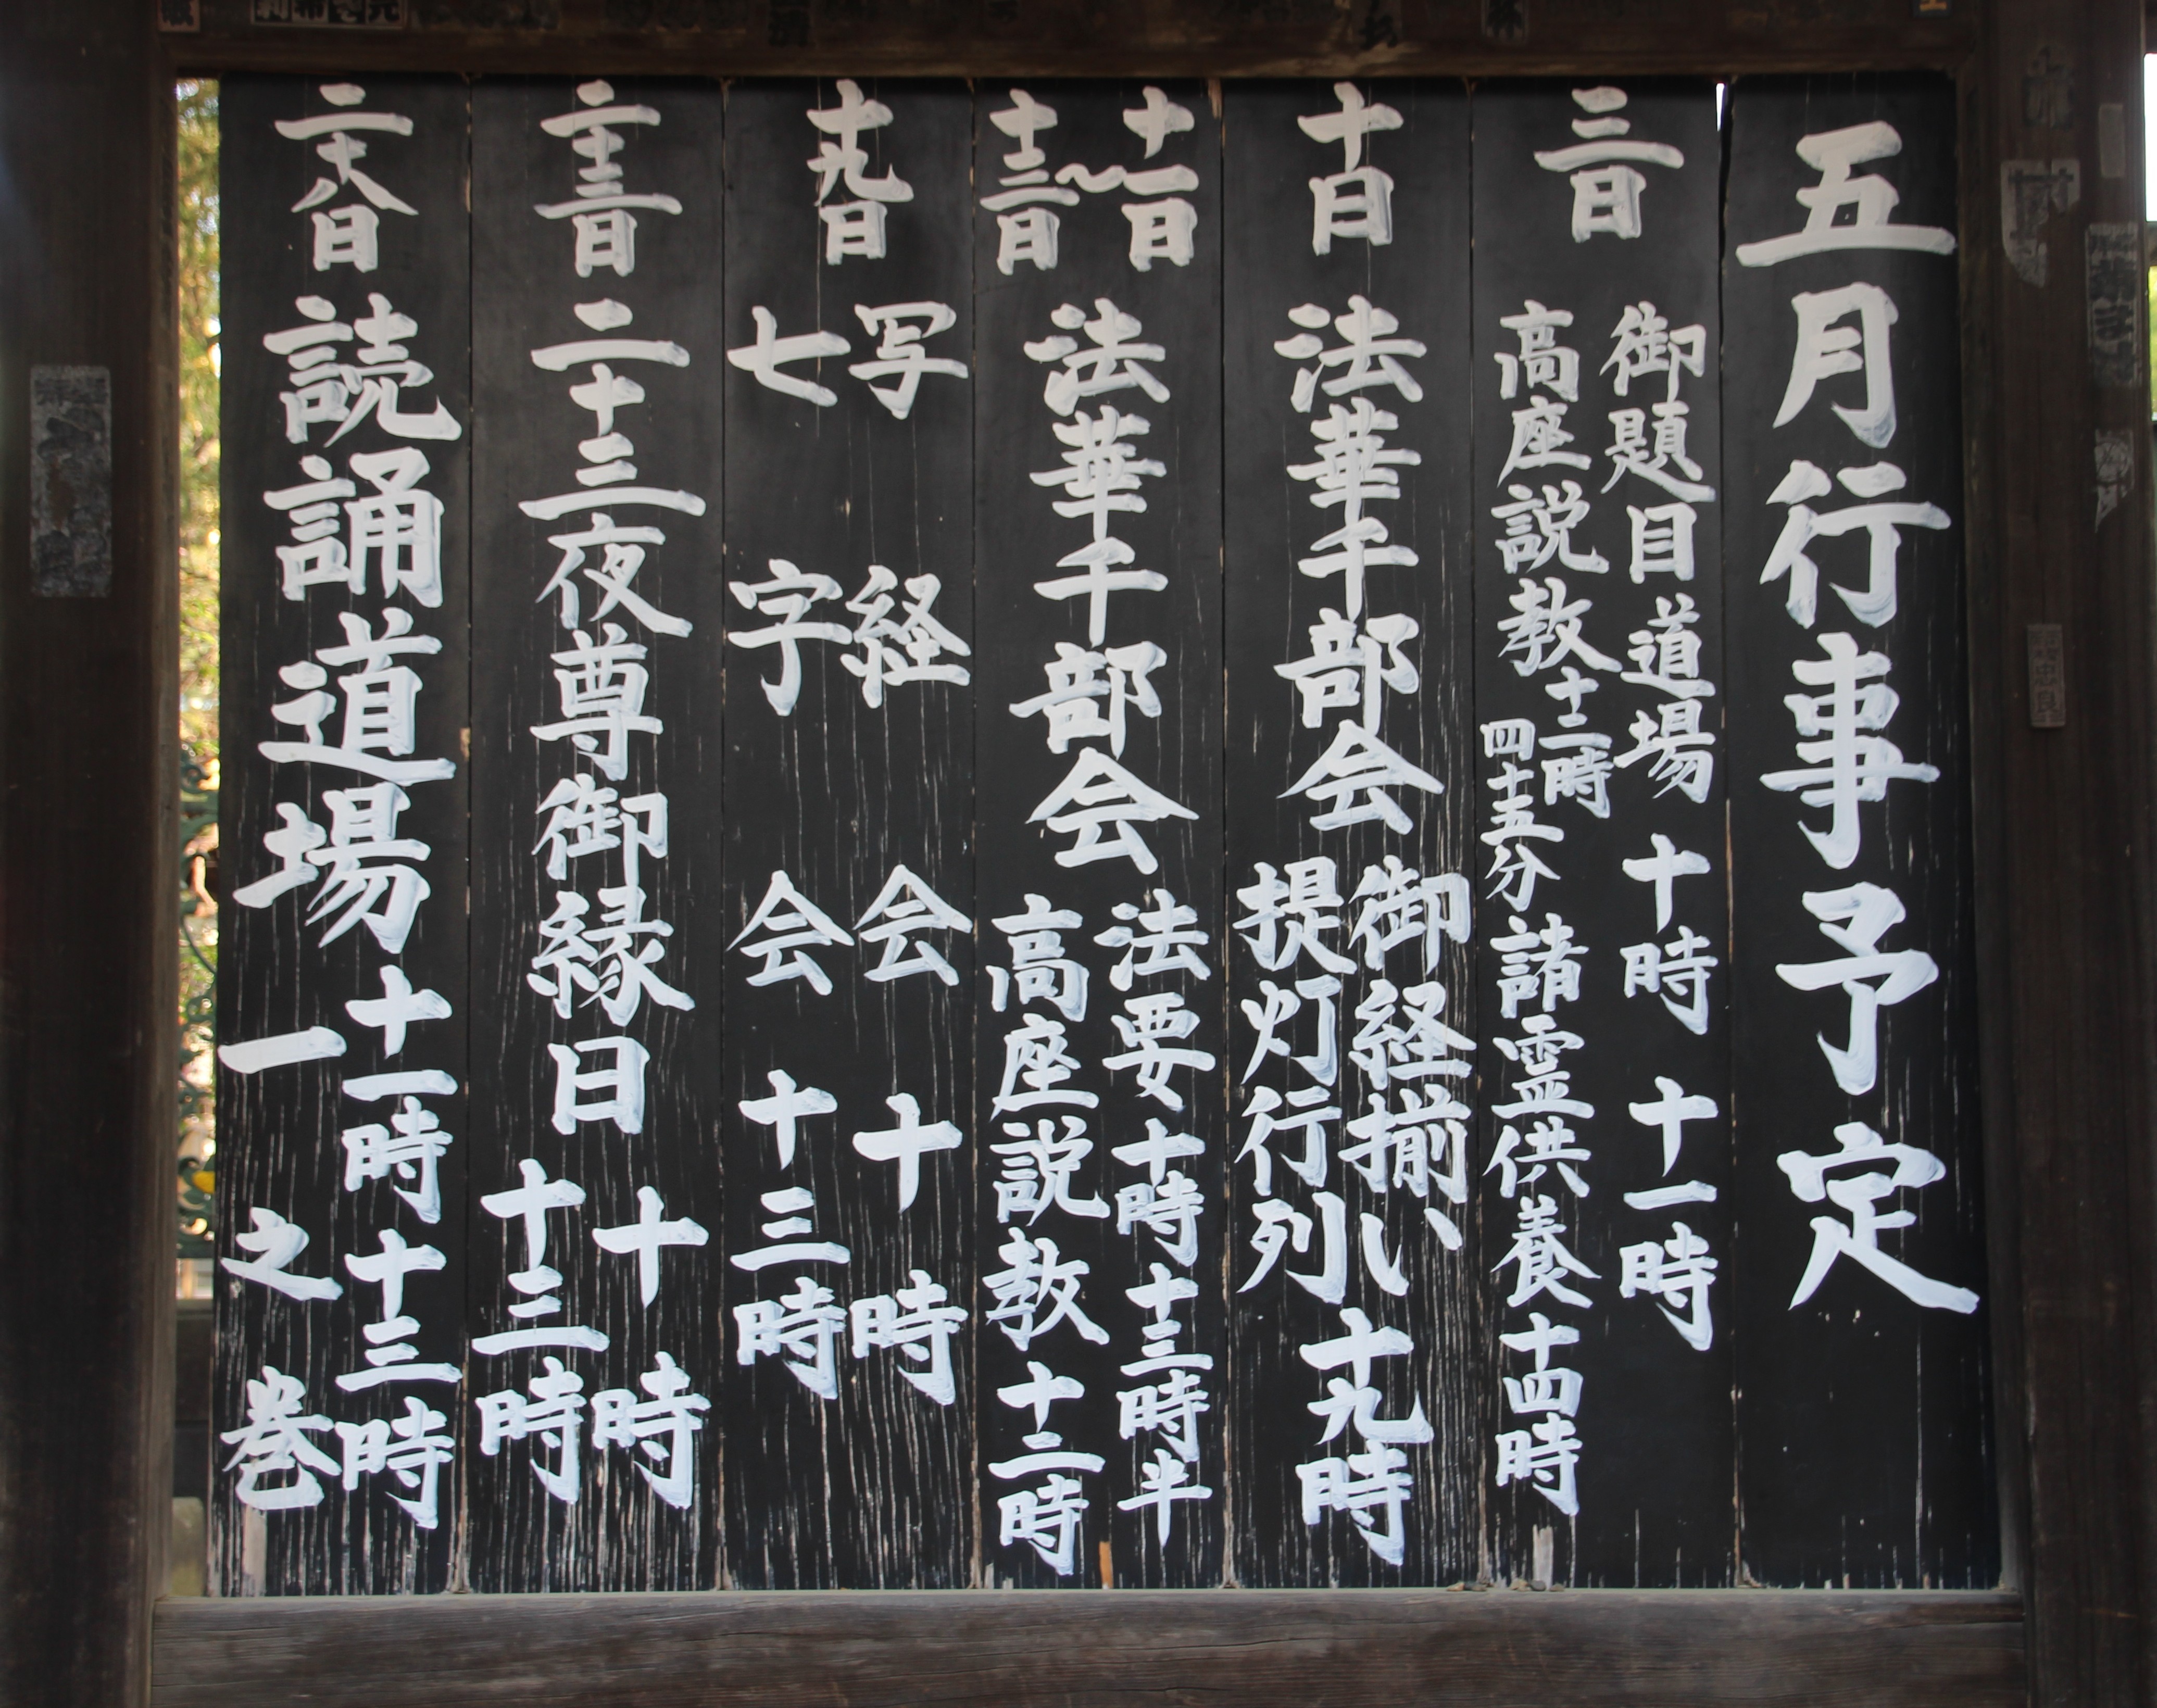 五月行事予定
三日
御題目道場 十時 十一時
高座説教 十二時四十五分 諸霊供養 十四時
十日
法華千部会
御経揃い
提灯行列
十九時
十一日〜
十三日
法華千部会
法要 十時 十三時半
高座説教 十二時
十九日
写経会 十時
七字会 十三時
二十三日
二十三夜尊御縁日
十時
十三時
二十八日
読誦道場
十一時 十三時
一之巻